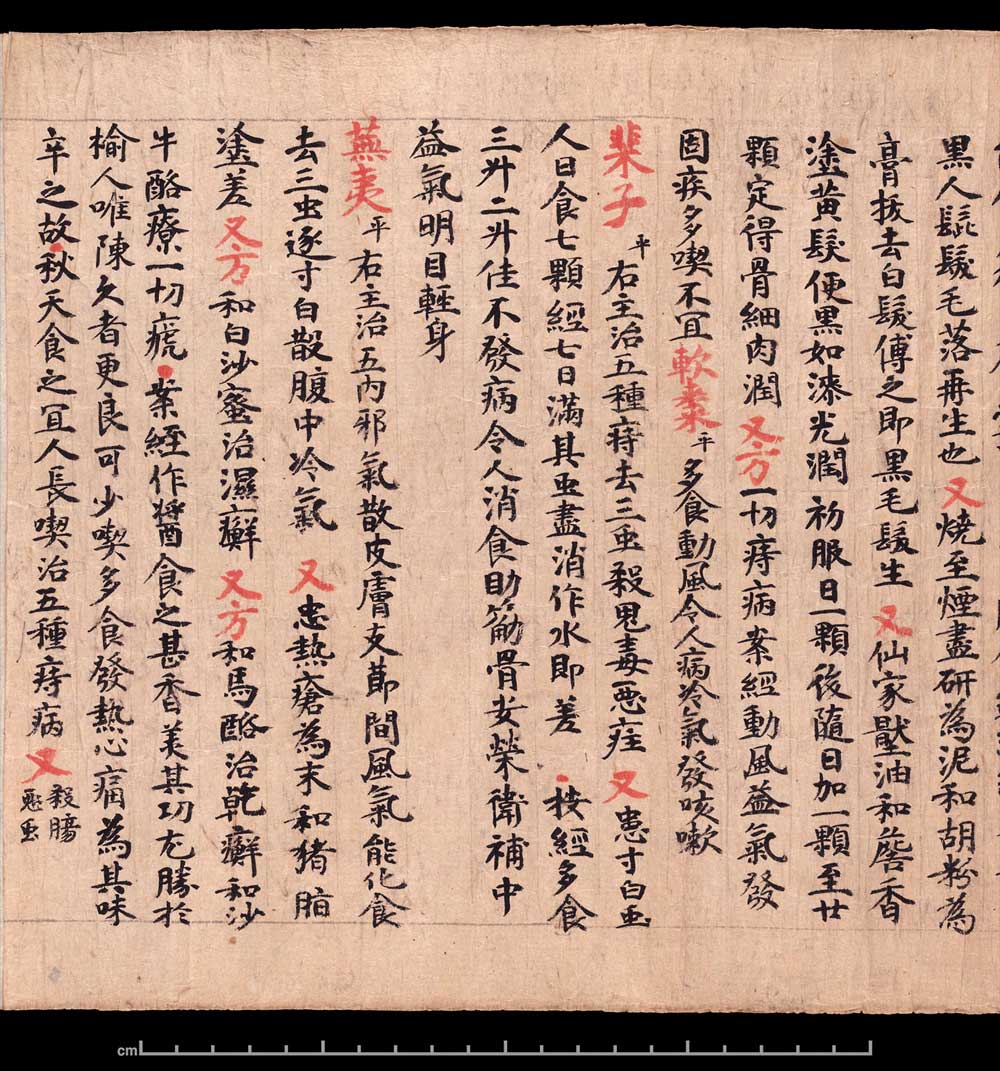 黑人髭髮毛落再生也又燒至煙盡研為泥和胡粉為
膏拔去白髮傅之即黑毛髮生又仙家壓油和詹香
塗黃髮便黑如漆光潤初服日一顆後隨日加一顆至廿
顆定得骨細肉潤又方一切痔病案經動風益氣發
固疾多喫不宜軟棗平多食動風令人病冷氣發咳嗽
棐子平右主治五種痔去三虫殺鬼毒惡疰又患寸白虫
人日食七顆經七日滿其虫盡消作水即差按經多食
三升二升佳不發病令人消食助筋骨安榮衛補中
益氣明目輕身
蕪荑平右主治五內邪氣散皮膚支節間風氣能化食
去三虫逐寸白散腹中冷氣又患熱瘡為末和猪脂
塗差又方和白沙蜜治濕癬又方和馬酪治乾癬和沙
牛酪療一切瘡案經作醬食之甚香美其功尤勝於
榆人唯陳久者更良可少喫多食發熱心痛為其味
辛之故秋天食之宜人長喫治五種痔病又殺腸
惡虫